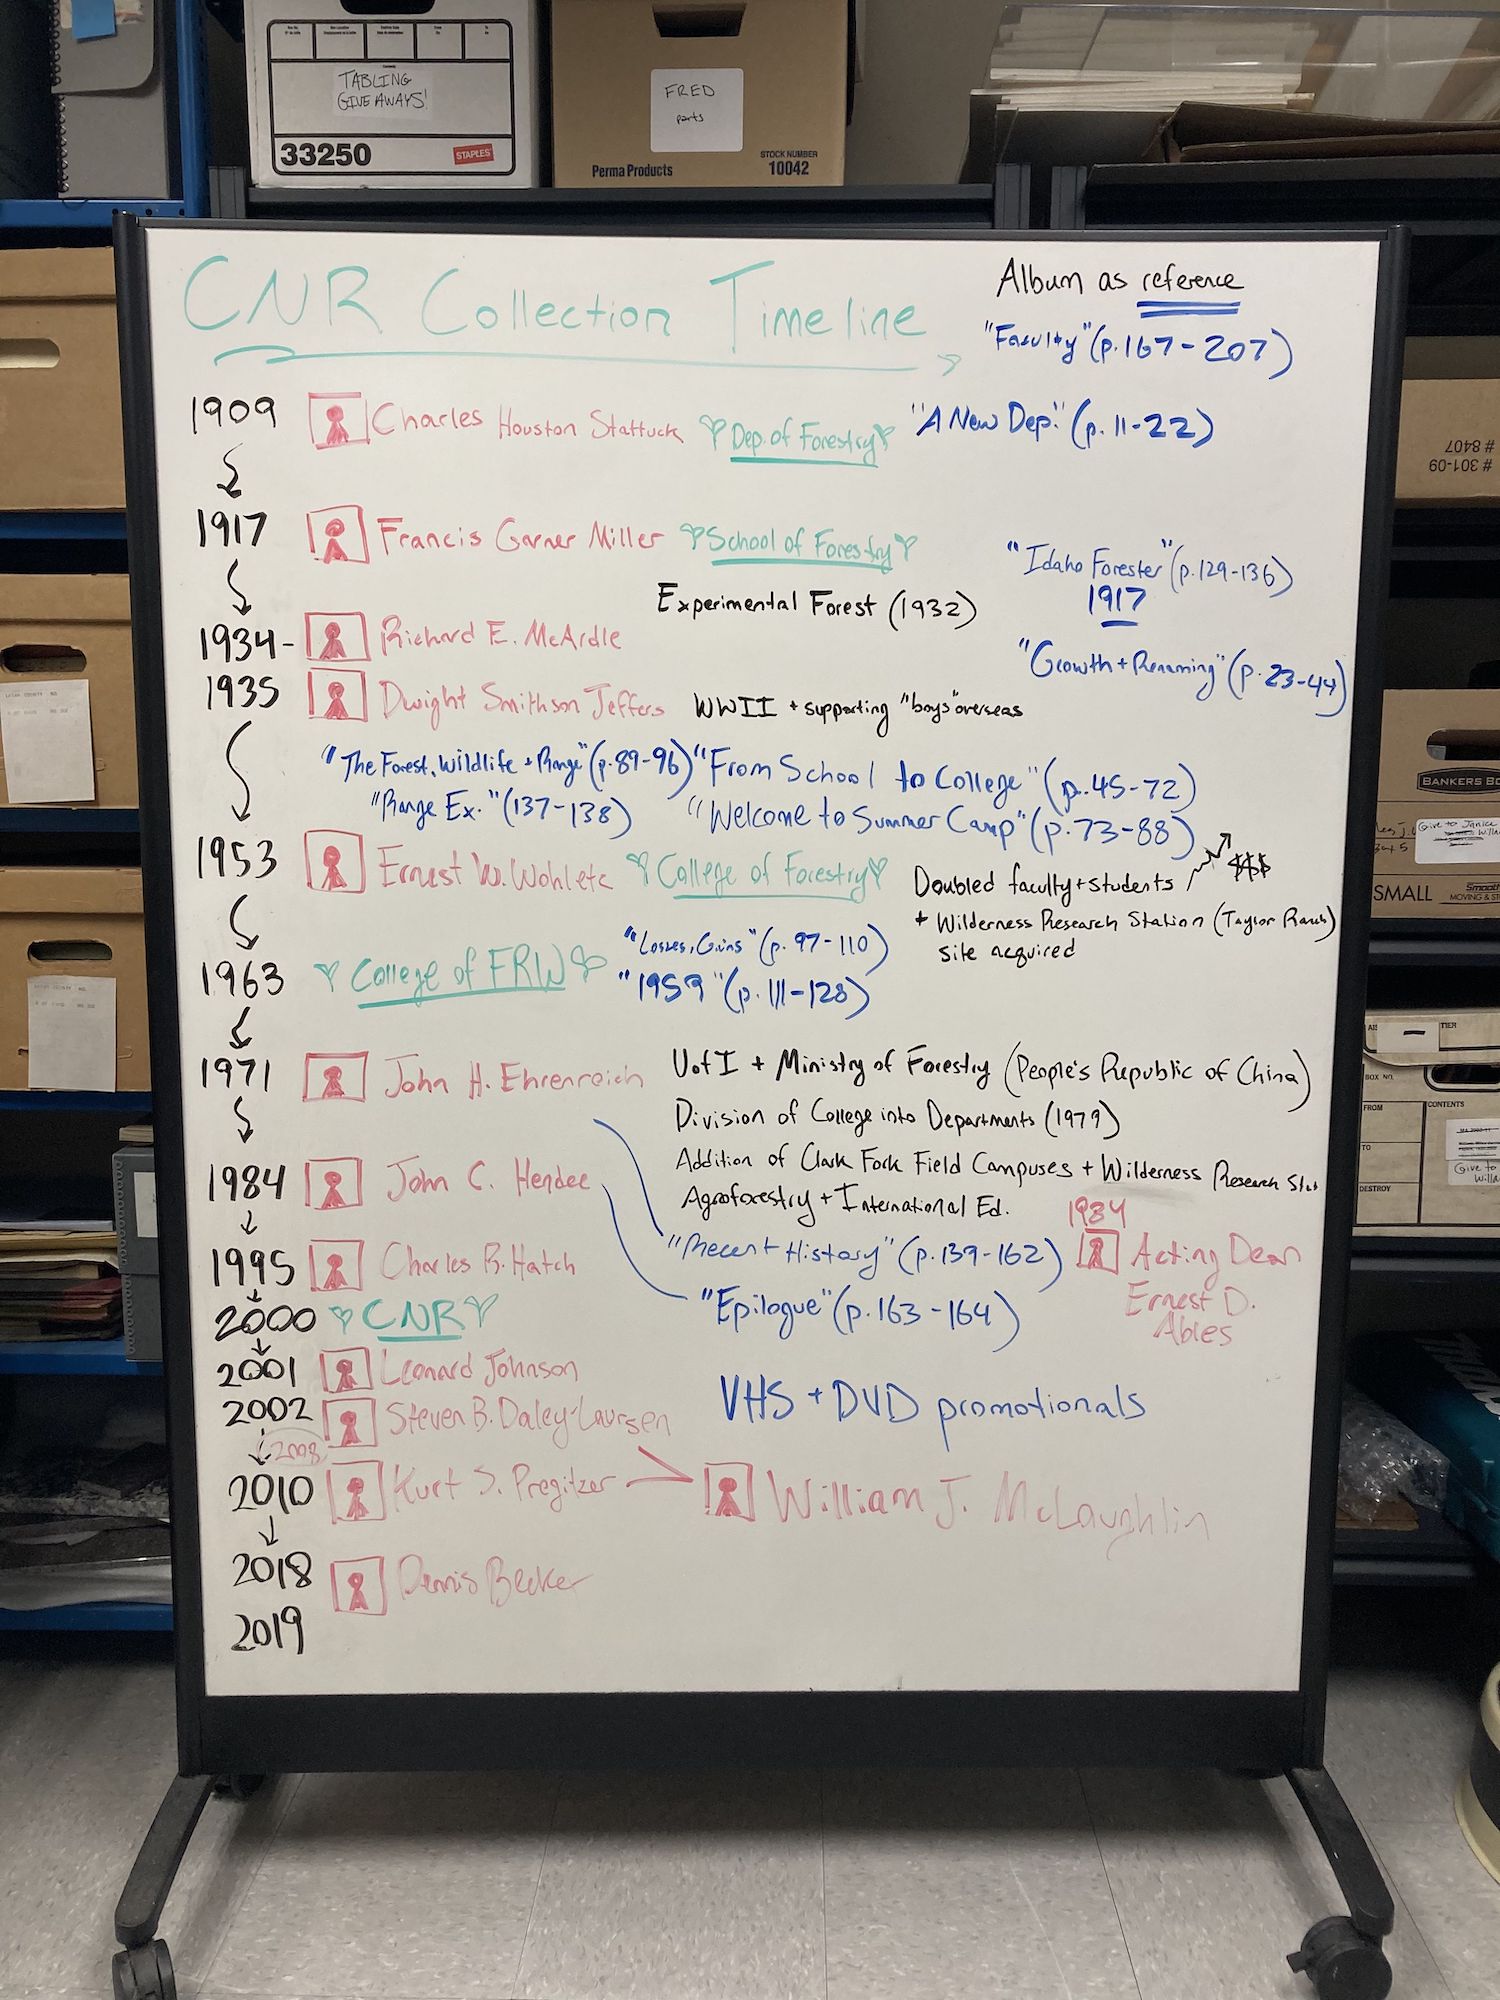 TABLING
GIVE AWAYS!
33250
STAPLES
FRED
parts
Perma Products
STOCK NUMBER
10042
CNR Collection Timeline
Album as reference
"Faculty" (p.167-207)
1909 Charles Houston Stattuck Dep. of Forestry "A New Dep." (p. 11-22)
1917 Francis Garner Miller School of Forestry
"Idaho Forester" (p.129-136)
1917
Experimental Forest (1932)
1934- Richard E. McArdle
"Growth + Renaming" (p. 23-44)
1935 Dwight Smithson Jeffers WWII + supporting "boys" overseas
"The Forest, Wildlife + Range" (p.89-96) "From School to College" (p.45-72)
"Range Ex." (137-138) "Welcome to Summer Camp" (p.73-88)
1953 Ernest W. Wohletz College of Forestry
Doubled faculty + students $$$
+ Wilderness Research Station (Taylor Ranch)
site acquired
1963 College of FRW
"Losses, Gains" (p. 97-110)
"1959" (p. 111-128)
1971 John H. Ehrenreich
UofI + Ministry of Forestry (People's Republic of China)
Division of College into Departments (1979)
Addition of Clark Fork Field Campuses + Wilderness Research
Agroforestry + International Ed.
1984 John C. Hendee
1984
Acting Dean
Ernest D.
Ables
"Recent History" (p.139-162)
1995 Charles R. Hatch
"Epilogue" (p.163-164)
2000 CNR
2001 Leonard Johnson
2002 Steven B. Daley-Laursen
VHS + DVD promotionals
2008
2010 Kurt S. Pregitzer William J. McLaughlin
2018 Dennis Becker
2019
# 8407
# 301-09
BANKERS BO
Give to Janice
SMALL
Smooth
MOVING & ST
TIER
BOX NO.
FROM
CONTENTS
TO
DESTROY
Give to
Willa